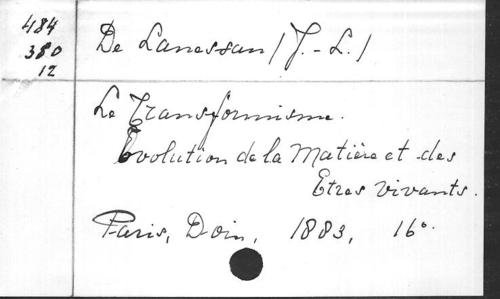 484
380
12
De Lanessan (J.-L.)
Le Transformisme.
Evolution de la Matière et des
Etres vivants.
Paris, Doin, 1883, 16º.